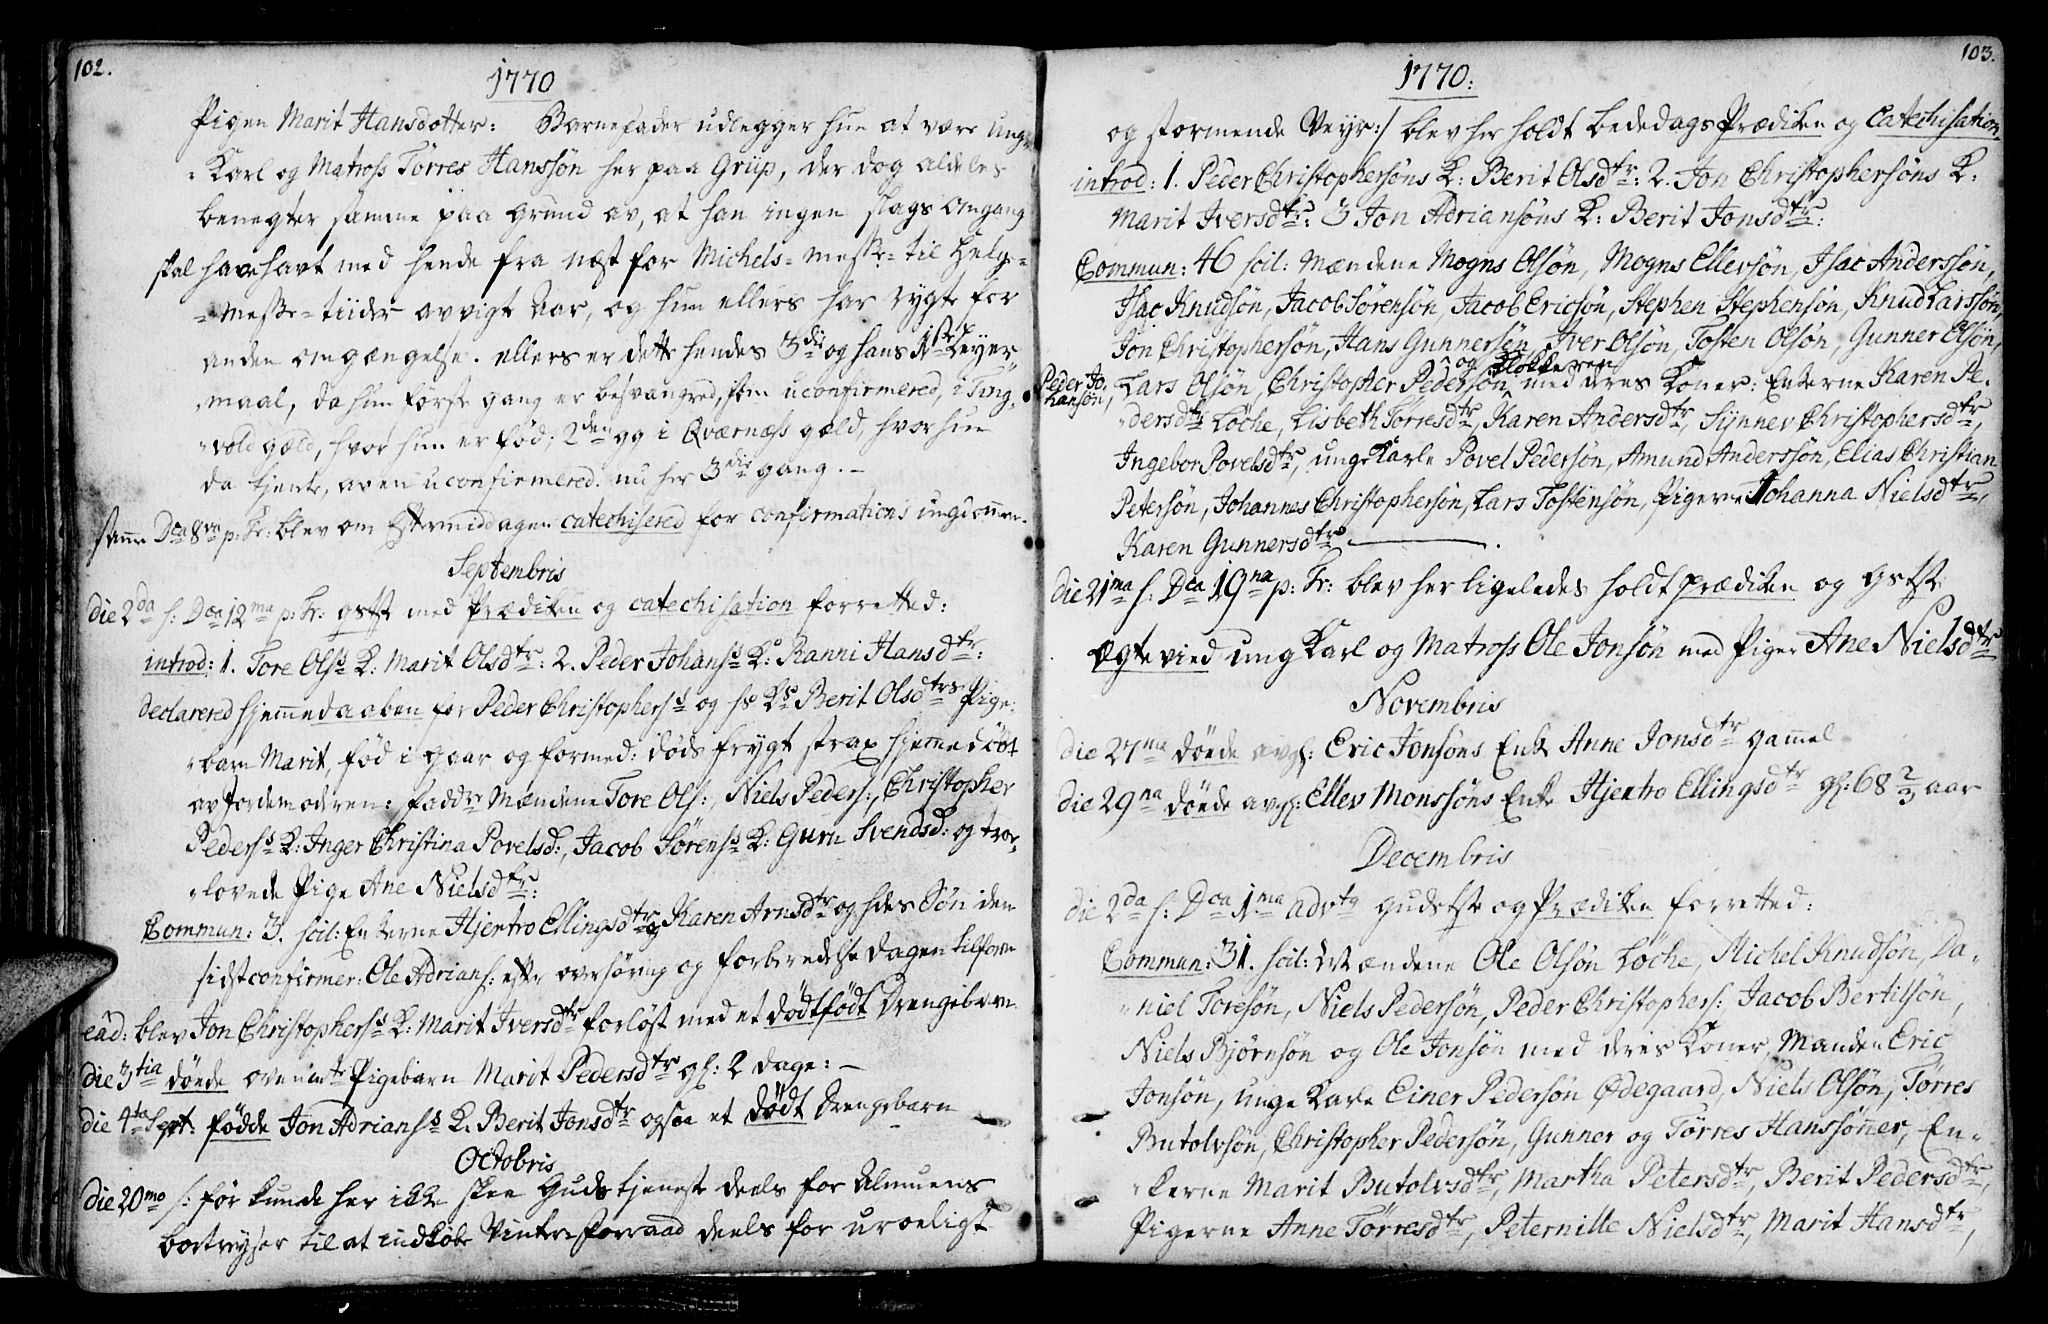 102.
1770
Pigen Marit Hansdotter: Barnefader udlegger hun at være Ung-
Karl og Matross Tørres Hanssøn her paa Grip, der dog aldeles
benegter samme paa grund av, at han ingen slags omgang
skal have havt med hende fra næst for Michels-messe-til Helge-
-messe-tiider avvigt Aar, og hun ellers har rygte for
anden omgængelse. ellers er dette hendes 3die og hans 1ste Leyer-
maal, da hun første gang er besvangred, som uconfirmered, i Ting-
vold gield, hvor hun er fød; 2den gg i Qværnæss gield, hvor hun
da tjente, aven uconfirmered. nu her 3die gang. -
Samme Dca 8va p: Tr: blev om Eftermiddagen catechisered for confirmations ungdommen.
Septembris
die 2da s: Dca 12ma p: Tr: gstst med Prædiken og catechisation forretted:
introd: 1. Tore Olss K: Marit Olsdtr: 2. Peder Johanss K: Ranni Hansdtr:
declarered hjemmedaaben for Peder Christopherss og hs Ks Berit Olsdtrs Pige-
barn Marit, fød i gaar og formed: døds frygt strax hjemmedøbt
av Jordemoderen: Faddre Mændene Tore Ols:, Niels Peders:, Christopher
Pederss K: Inger Christina Povelsd:, Jacob Sørenss K: Guru Svendsd: og tror-
lovede Pige Ane Nielsdtr:
Commun: 3. scil: Enkerne Hjertro Ellingsdtr og Karen Arnsdtr og hdes Søn den
sidst confirmer: Ole Adrians: eftr overhøring og forberedelse dagen tilforn
eâd: blev Jon Christopherss K: Marit Iversdtr forløst med et dødtfødt Drengebarn
die 3tia døede ovennte Pigebarn Marit Pedersdtr gl: 2 dage: -
die 4ta Sept: fødde Jon Adrianss K. Berit Jonsdtr ogsaa et dødt Drengebarn
Octobris
die 20mo /: før kunde her ikke skee Gudstjeneste deels for Almuens
bortreyser til at indkøbe Vinterforraad deels for uroeligt
103.
1770:
og stormende Veyr:/ blev her holdt bededags Prædiken og Catechisation
introd: 1. Peder Christophersøns K: Berit Olsdtr: 2. Jon Christophersøns K:
Marit Iversdtr: 3 Jon Adriansøns K: Berit Jonsdtr:
Commun: 46 scil: Mændene Mogns Olsøn, Mogns Ellefsøn, Isac Anderssøn,
Isac Knudsøn, Jacob Sørensøn, Jacob Ericsøn, Stephen Stephensøn, Knud Larssøn,
Jon Christophersøn, Hans Gunnersøn, Iver Olsøn, Tosten Olsøn, Gunner Olsøn,
og Klokkeren
Peder Jo-
hansøn, Lars Olsøn, Christopher Pedersøn, med deres Koner: Enkerne Karen Pe-
dersdtr Løche, Lisbeth Torresdtr, Karen Andersdtr, Synnev Christophersdtr,
Ingebor Povelsdtr, unge Karle Povel Pedersøn, Amund Anderssøn, Elias Christian
Petersøn, Johannes Christophersøn, Lars Tostensøn, Pigerne Johanna Nielsdtr,
Karen Gunnersdtr.
die 21ma s: Dca 19na p: Tr: blev her ligeledes holdt prædiken og gstst
ægteviede ung Karl og Matross Ole Jonsøn med Pigen Ane Nielsdtr
Novembris
die 27ma døede avg: Eric Jonsøns Enke Anne Jonsdtr gammel
die 29na døede avg: Ellev Monssøns Enke Hjertro Ellingsdtr gl: 68 2/3 aar
Decembris
die 2da s: Dca 1ma advtg gudstste og Prædiken forretted:
Commun: 31. scil: Mændene Ole Olsøn Løche, Michel Knudsøn, Da-
niel Toresøn, Niels Pedersøn, Peder Christophers: Jacob Bertilsøn,
Niels Bjørnsøn og Ole Jonsøn med deres Koner, Manden Eric
Jonsøn, unge Karle Einer Pedersøn Ødegaard, Niels Olsøn, Tørres
Butolvsøn, Christopher Pedersøn, Gunner og Tørres Hanssønner, En-
kerne Marit Butolvsdtr, Martha Petersdtr, Berit Pedersdtr,
Pigerne Anne Tørresdtr, Peternille Nielsdtr, Marit Hansdtr,